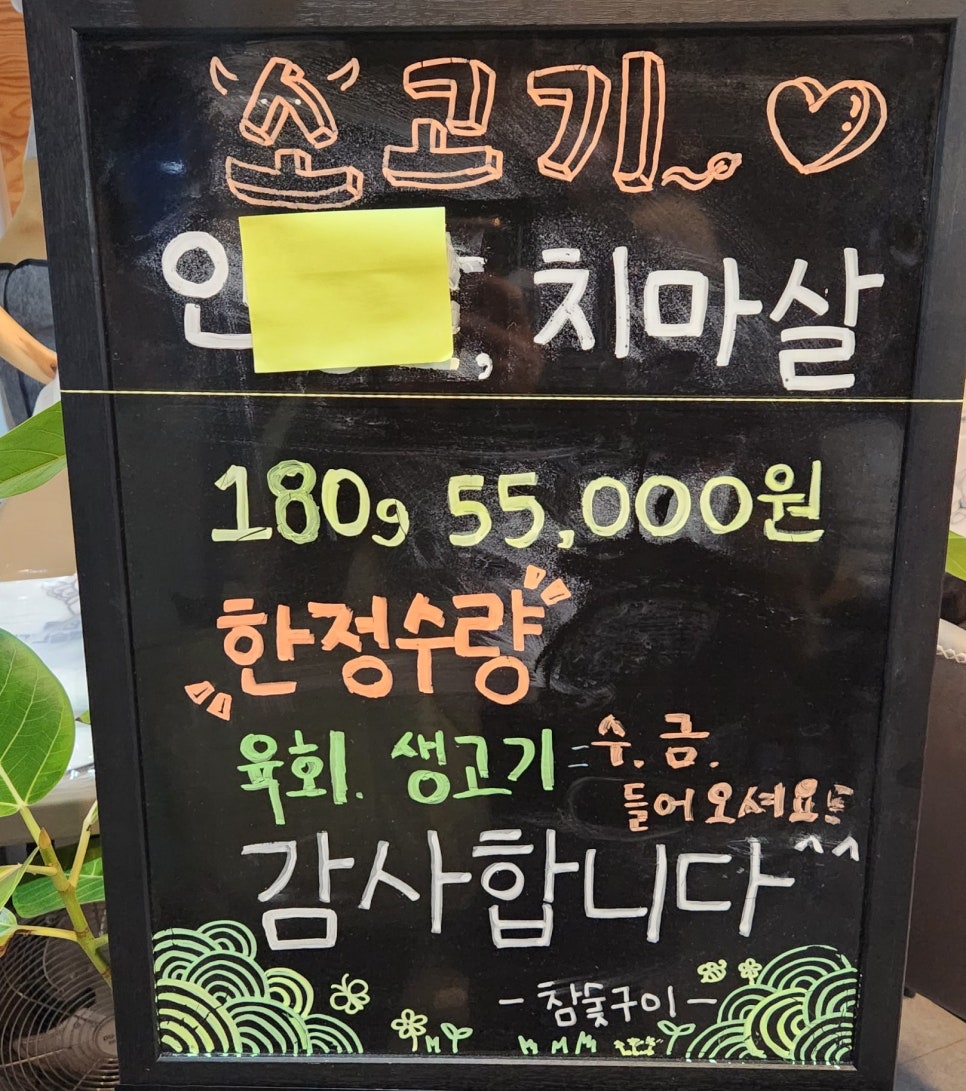 소고기
치마살
180g 55,000원
한정수량
육회. 생고기 = 수. 금.
들어오셔요!!
^^
감사합니다
- 참숯구이 -